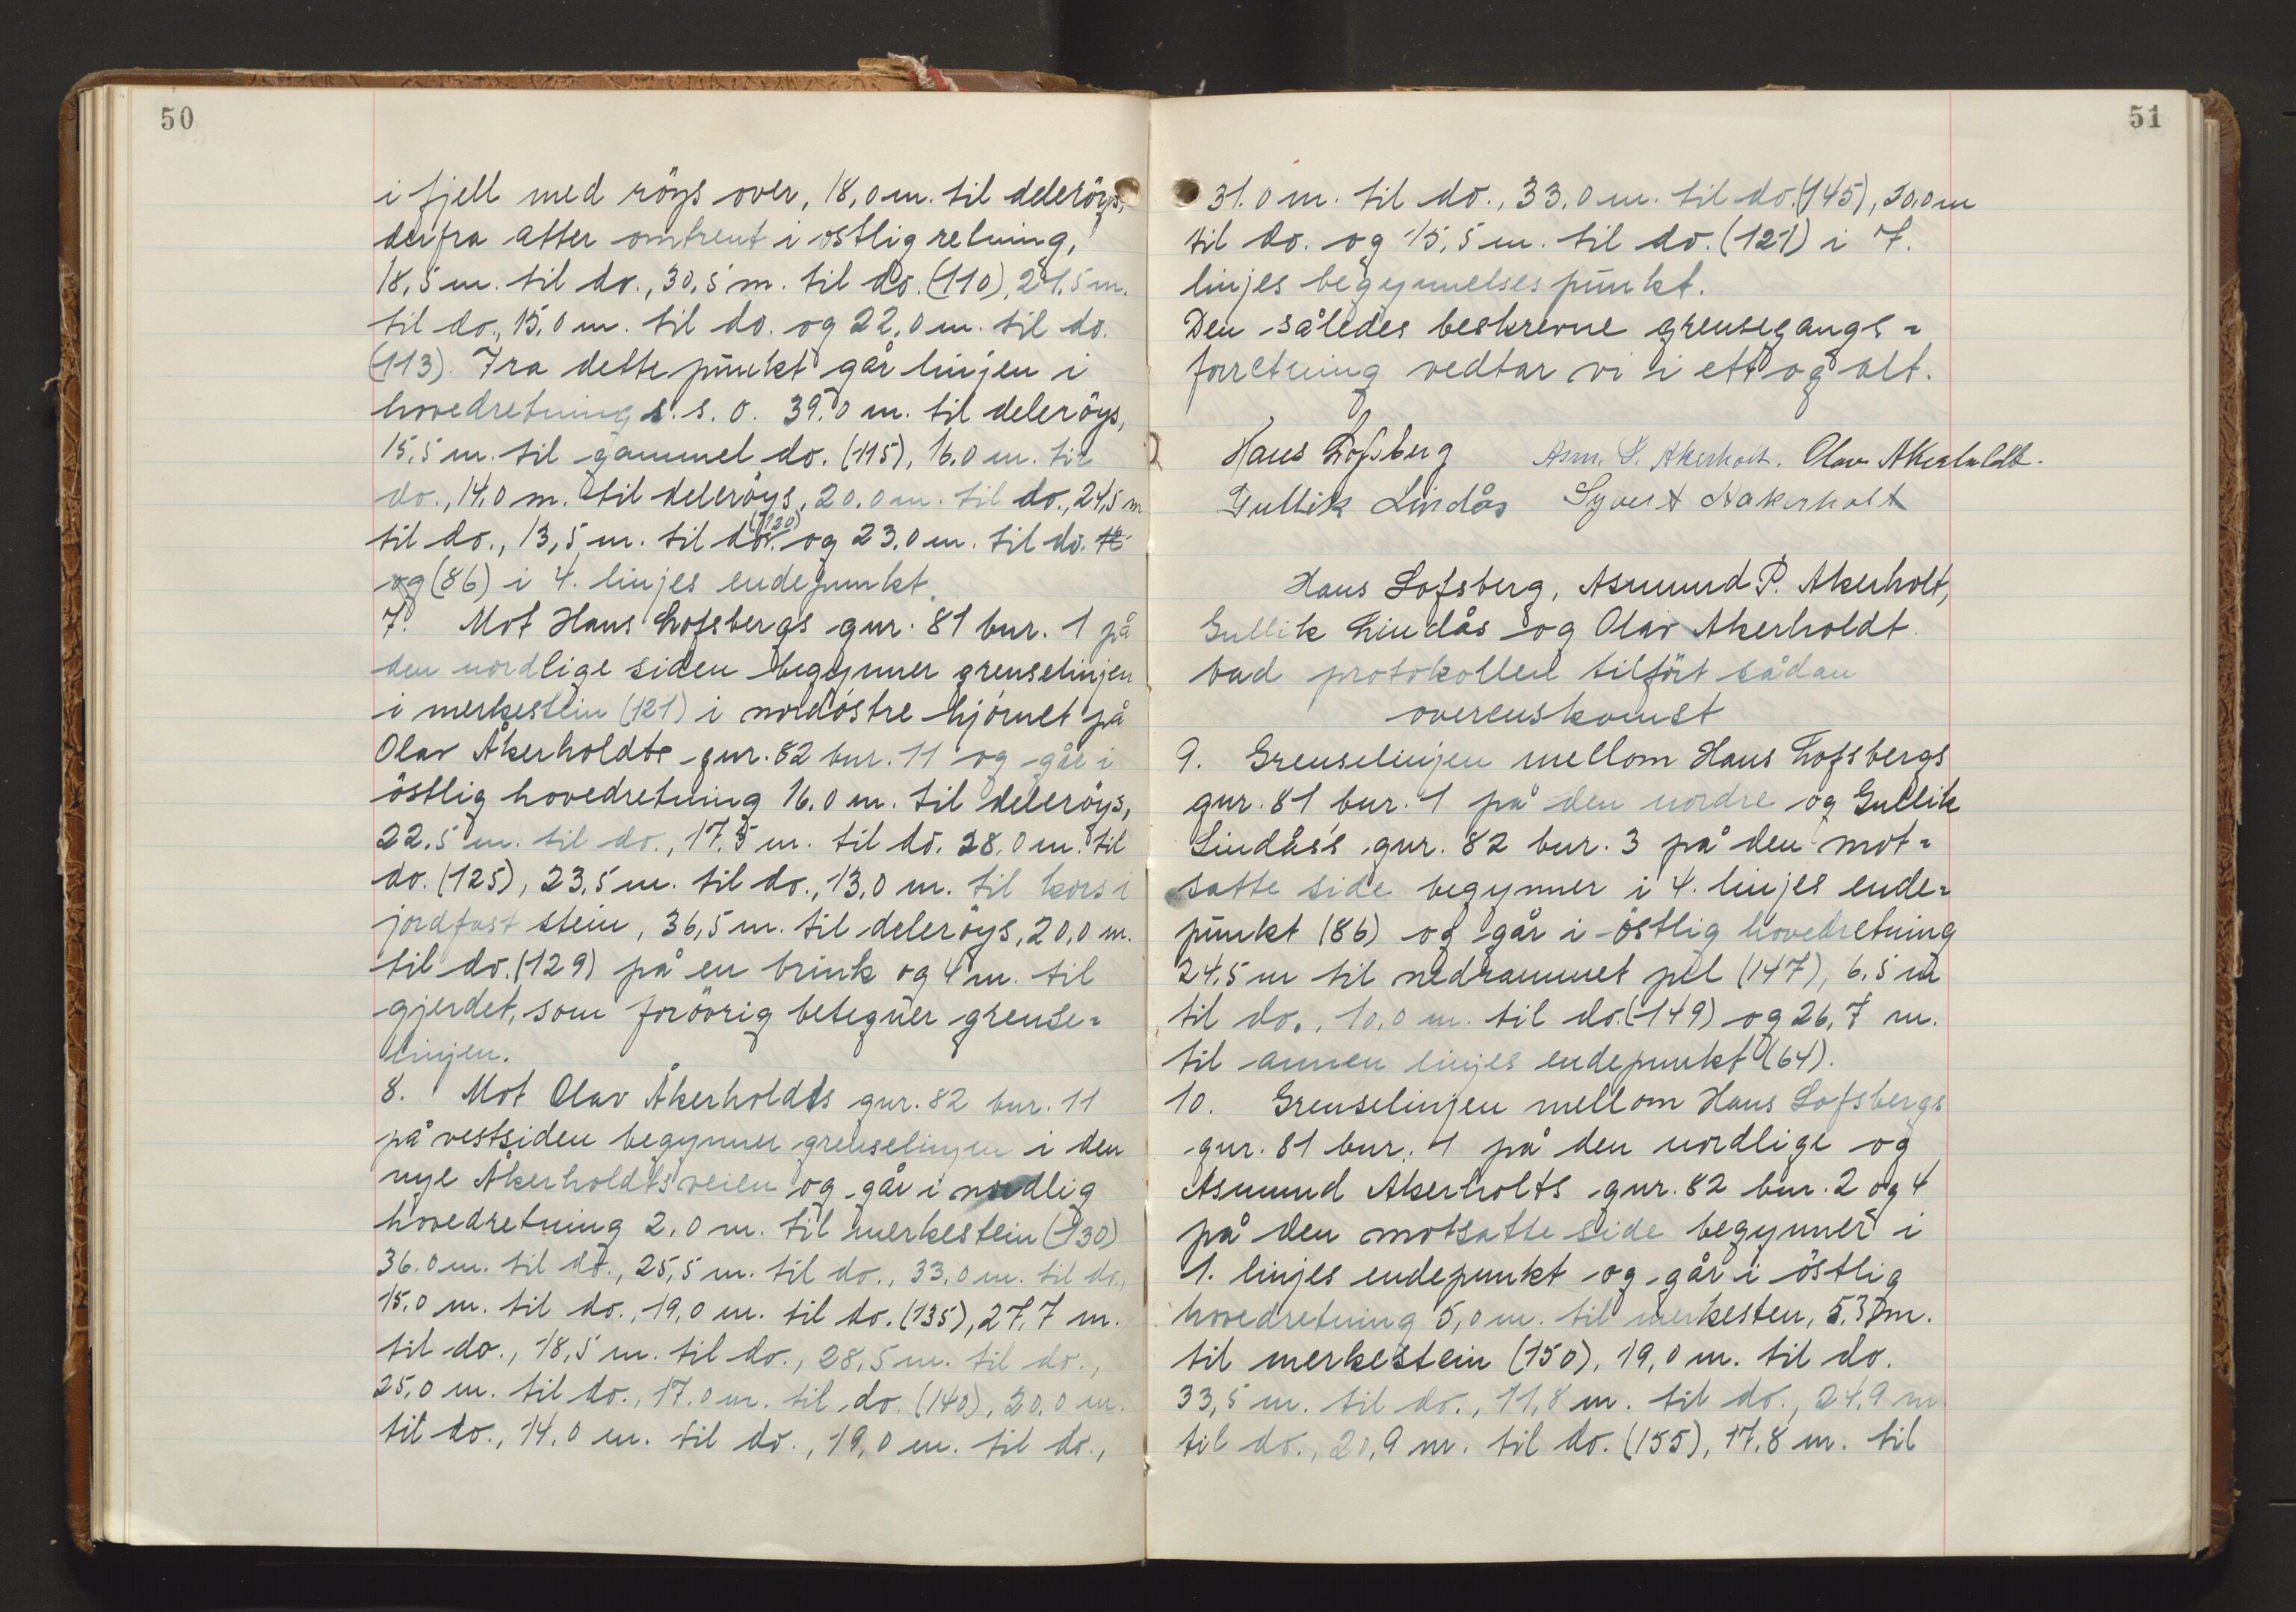 50
i fjell med röys over, 18,0 m. til deleröys,
derfra atter omtrent i östlig retning,
18,5 m. til do., 30,5 m. til do. (110), 21,5 m.
til do., 15,0 m. til do. og 22,0 m. til do.
(113). Fra dette punkt går linjen i
hovedretning s. s. o. 39,0 m. til deleröys,
15,5 m. til gammel do. (115), 16,0 m. til
do., 14,0 m. til deleröys, 20,0 m. til do., 24,5 m
til do., 13,5 m. til do. (120) og 23,0 m. til do.
og (86) i 4. linjes endepunkt.
7. Mot Hans Lofsbergs gnr. 81 bnr. 1 på
den nordlige siden begynner grenselinjen
i merkestein (121) i nordöstre hjörnet på
Olav Åkerholdts gnr. 82 bnr. 11 og går i
östlig hovedretning 16,0 m. til deleröys,
22,5 m. til do., 17,5 m. til do. 28,0 m. til
do. (125), 23,5 m. til do., 13,0 m. til kors i
jordfast stein, 36,5 m. til deleröys, 20,0 m.
til do. (129) på en brink og 4 m. til
gjerdet, som forövrig betegner grense=
linjen.
8. Mot Olav Åkerholdts gnr. 82 bnr. 11
på vestsiden begynner grenselinjen i den
nye Åkerholdtsveien og går i nordlig
hovedretning 2,0 m. til merkestein (130)
36,0 m. til do., 25,5 m. til do., 33,0 m. til do.,
15,0 m. til do., 19,0 m. til do. (135), 27,7 m.
til do., 18,5 m. til do., 28,5 m. til do.,
25,0 m. til do., 17,0 m. til do. (140), 20,0 m.
til do., 14,0 m. til do., 19,0 m. til do.,
51
31,0 m. til do., 33,0 m. til do. (145), 20,0 m
til do. og 15,5 m. til do. (121) i 7.
linjes begynnelsespunkt.
Den således beskrevne grensegangs=
forretning vedtar vi i ett og alt.
Hans Lofsberg Asm. P. Akerholt. Olav Akerholdt.
Gullik Lindås Syvert Aakerholt
Hans Lofsberg, Asmund P. Akerholt,
Gullik Lindås og Olav Akerholdt
bad protokollen tilfört sådan
overenskomst
9. Grenselinjen mellom Hans Lofsbergs
gnr. 81 bnr. 1 på den nordre og Gullik
Lindås's gnr. 82 bnr. 3 på den mot=
satte side begynner i 4. linjes ende=
punkt (86) og går i östlig hovedretning
24,5 m til nedrammet pel (147), 6,5 m
til do., 10,0 m. til do. (149) og 26,7 m.
til annen linjes endepunkt (64).
10. Grenselinjen mellom Hans Lofsbergs
gnr. 81 bnr. 1 på den nordlige og
Asmund Akerholts gnr. 82 bnr. 2 og 4
på den motsatte side begynner i
1. linjes endepunkt og går i östlig
hovedretning 5,0 m. til merkesten, 5,37 m.
til merkestein (150), 19,0 m. til do.
33,5 m. til do., 11,8 m. til do., 24,9 m
til do., 20,9 m. til do. (155), 17,8 m. til